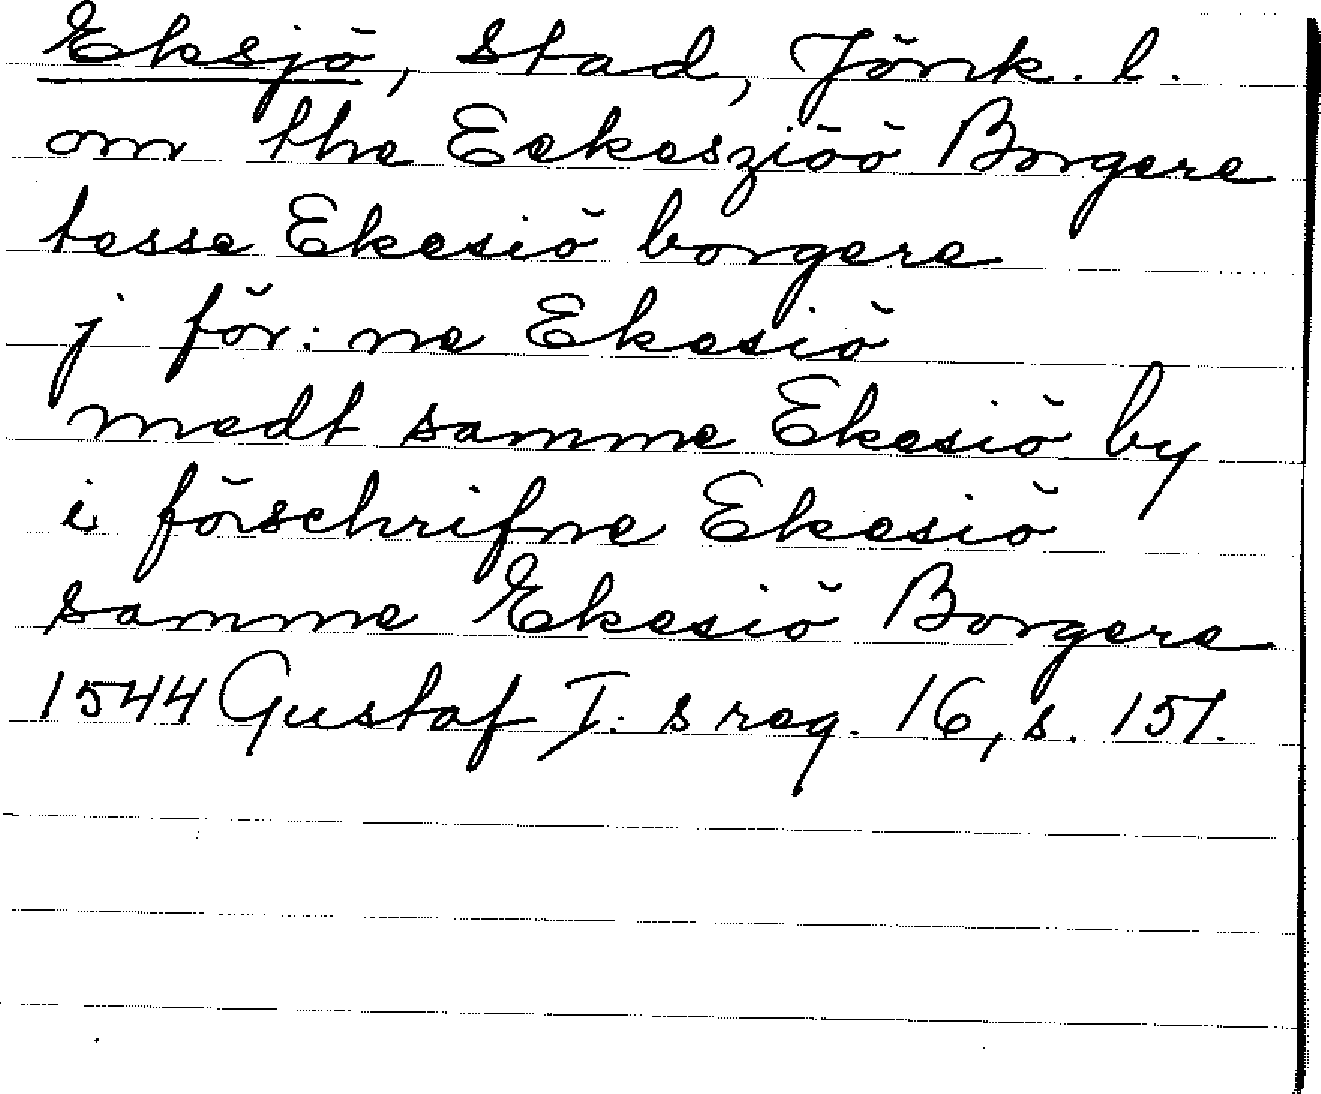 Eksjö, stad, Jönk. l.
om the Eekesziöö Borgere
tesse Ekesiö borgere
j för: ne Ekesiö
medt samme Ekesiö by
i förschrifne Ekesiö
samme Ekesiö Borgere
1544 Gustaf I: s reg. 16, s. 151.